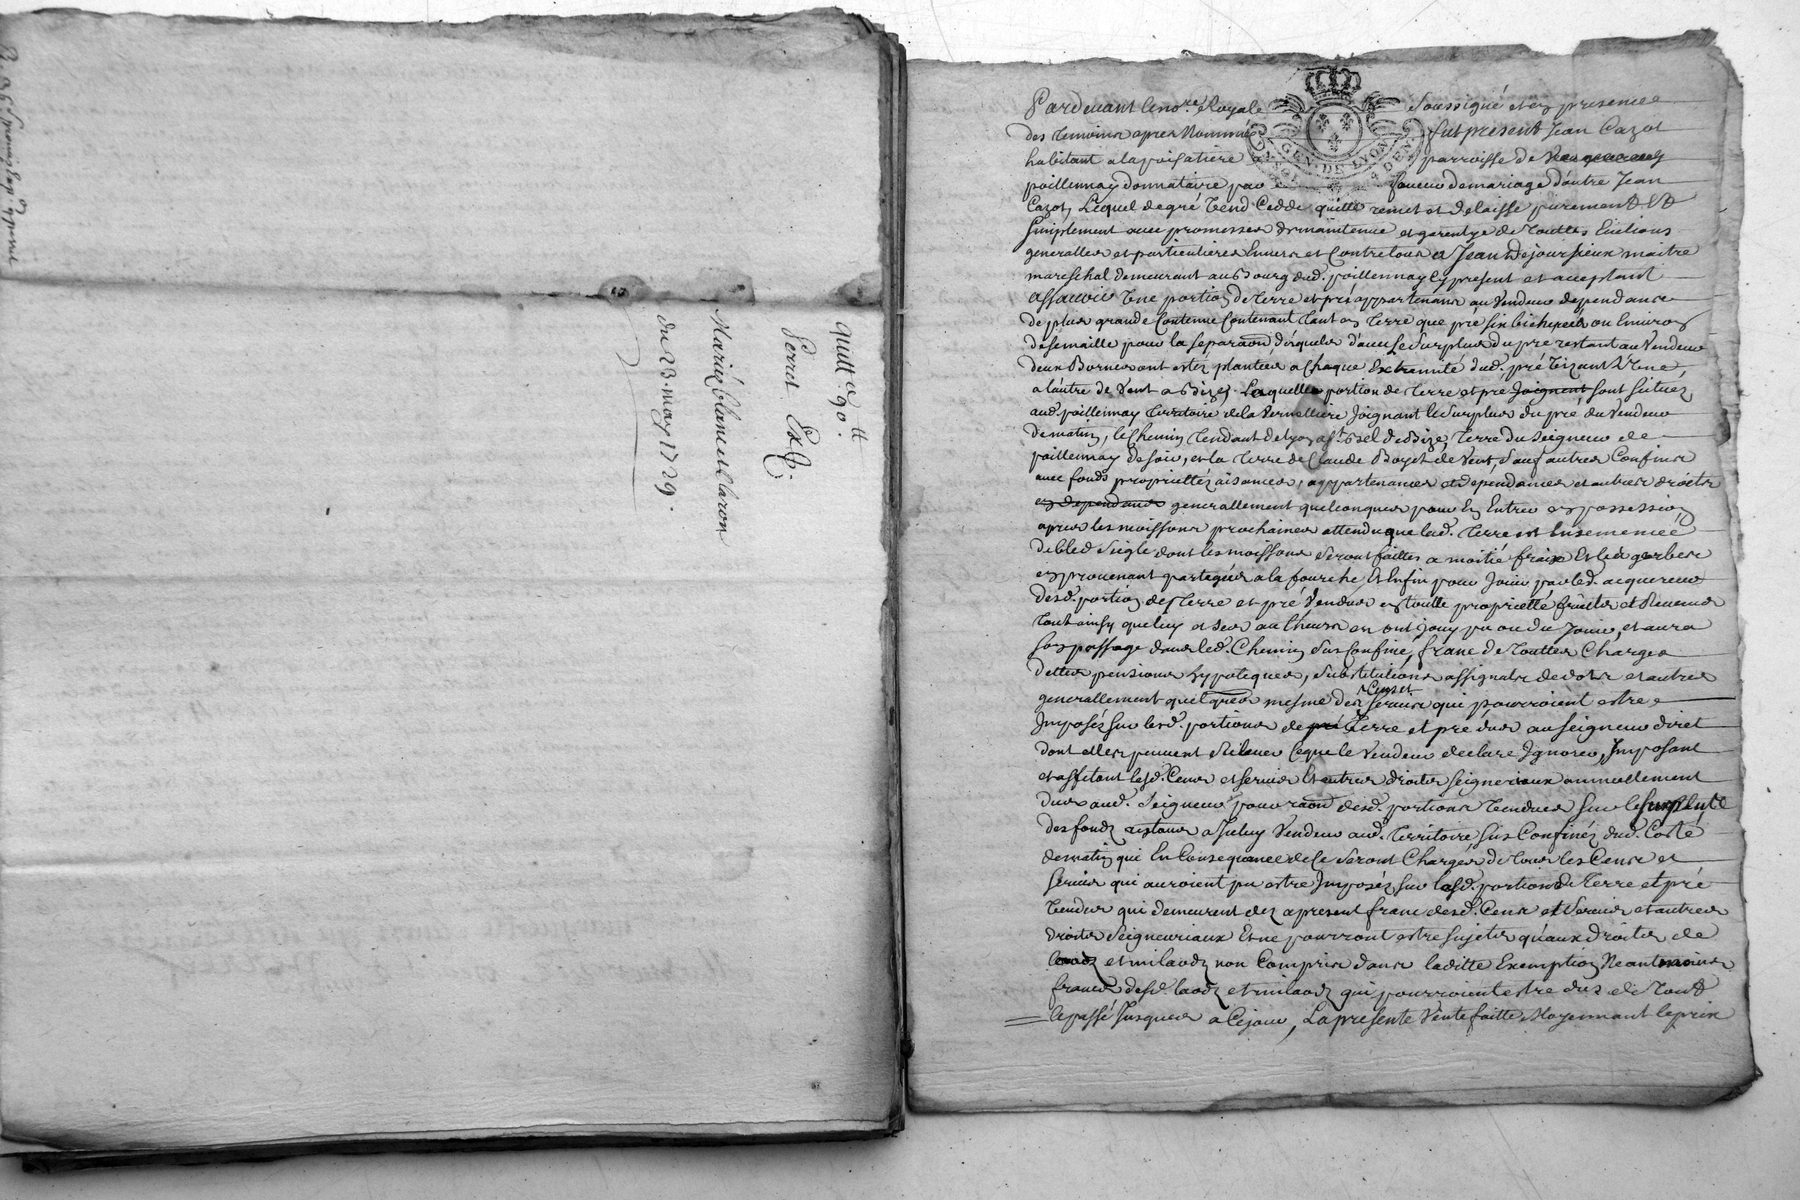 quitt.ce 90.tt
Perret Exp.
Mariéz Clunet Claron
du 23. may 1729.
GEN. DE LYON
4 DEN
Pardevant le no.re Royal soussigné et en presence
des temoins apres Nommés fut present Jean Cazot
habitant a la poisatiere parroisse de
poillennay donnataire par faveur de mariage d'autre Jean
Cazot, Lequel de gré vend Cedde quitte remet et delaisse purement et
simplement avec promesses de maintenue et garentye de touttes Evictions
generalles et particulieres Envers et Contre tous a Jean Dejoursieux maitre
mareschal demeurant au Bourg dud. poillennay cy present et acceptant
assavoir Une portion de terre et pré appartenans au vendeur dependance
de plus grande Contenue Contenant tant en terre que pré six bicherées ou Environ
de semaille pour la separaon desquels d'avec le surplus du pré restant au Vendeur
deux Bornes ont estéz plantées a Chaque Extremité dud. pré tizant d'Une
a lautre de Vent a Bize, Laquelle portion de terre et pré joignent sont situez
aud. poillennay territoire de la Vernelliere Joignant le surplus du pré du Vendeur
de matin, le Chemin tendant de lyon a st. de Bize, terre du seigneur de
poillennay de soir, et la terre de Claude Boyet de Vent, sauf autres Confins
avec fonds proprietéz aisances, appartenances et dependances et autres droits
en dependans generallement quelconques pour En Entrer en possession
apres les moissons prochaines attendu que lad. terre est Ensemencée
de bled seigle dont les moissons seront faittes a moitié fraix Et les gerbes
en provenant partagées a la fourche Et Enfin pour Jouir par led. acquereur
desd. portion de terre et pré Vendus en toutte proprietté fruits et Revenus
tout ainsy que luy et ses autheurs en ont jouy pu ou du Jouir, et aura
son passage dans led. Chemin sus Confiné, franc de touttes Charges
dettes pensions hypoteques, substitutions assignats de dots et autres
generallement quelques mesme des Cens et servis qui pourroient estre
Imposés sur lesd. portions de pré terre et pré dus au seigneur diret
dont elles peuvent Relever ce que le Vendeur declare Ignorer, Imposant
et affetant lesd. Cens et servis Et autres droits seigneriaux annuellement
dus aud. seigneur pour raon desd. portions vendues sur le surplus
des fonds restans a Iceluy Vendeur aud. territoire sus Confinés dud. Costé
de matin qui En Consequance de ce seront Chargés de tous les Cens et
servis qui auroient pu estre Imposés sur lesd. portions de terre et pré
Vendus qui demeurent dez a present franc desd. Cens et servis et autres
droits seigneuriaux Et ne pourront estre sujets qu'aux droits de
laodz et milaodz non Compris dans laditte Exemption Neantmoins
francs desd. laodz et milaodz qui pourroient estre dus de tout
le passé Jusques a Ce jour, La presente Vente faitte Moyennant le prix